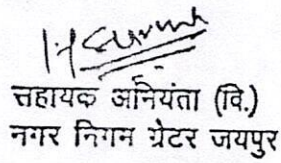 सहायक अभियंता (वि.)
नगर निगम ग्रेटर जयपुर